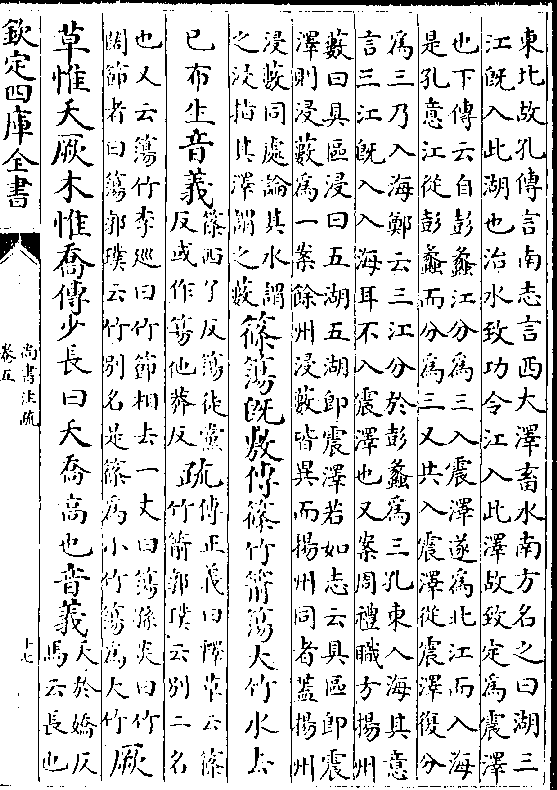 東北故孔傳言南志言西大澤畜水南方名之曰湖三
江既入此湖也治水致功令江入此澤故致定為震澤
也下傳云自彭蠡江分為三入震澤遂為北江而入海
是孔意江從彭蠡而分為三又共入震澤從震澤復分
為三乃入海鄭云三江分於彭蠡為三孔東入海其意
言三江既入入海耳不入震澤也又案周禮職方揚州
藪曰具區浸曰五湖五湖即震澤若如志云具區即震
澤則浸藪為一案餘州浸藪皆異而揚州同者蓋揚州
浸藪同處論其水謂
之浸指其澤謂之藪
篠簜既敷傳篠竹箭簜大竹水去
已布生音義
篠西了反簜徒黨
反或作簜他莽反
疏
傳正義曰釋草云篠
竹箭郭璞云別二名
也又云簜竹李廵曰竹節相去一丈曰簜孫炎曰竹
闊節者曰簜郭璞云竹別名是篠為小竹簜為大竹
厥
草惟夭厥木惟喬傳少長曰夭喬高也音義
夭於嬌反
馬云長也
欽定四庫全書
尚書注疏
卷五
十七